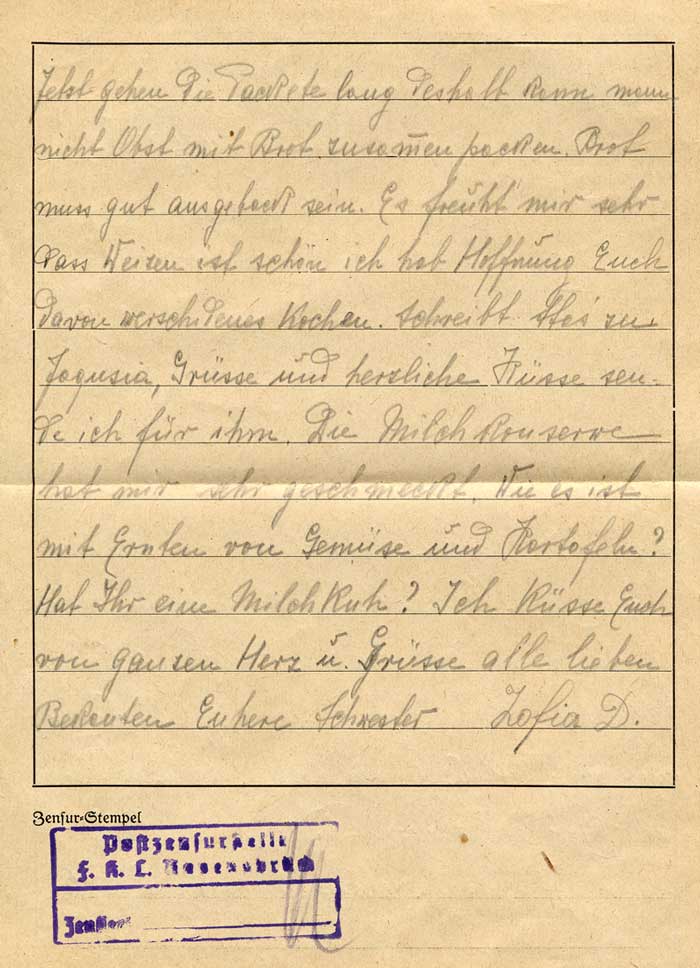 Jetzt gehen Die Packete lang deshalb kann mann
nicht Obst mit Brot zusam̅en packen. Brot
muss gut ausgebackt sein. Es freuht mir sehr
dass Weizen ist schön ich hab Hoffnung Euch
davon werschidenes Kochen. Schreibt zu
Jagusia, Grüsse und herzliche Küsse sen-
de ich für ihm. Die Milchkonserwe
hat mir sehr geschmeckt. Wie es ist
mit Ernten von Gemüse und Kartofeln?
Hat Ihr eine MilchKuh? Ich Küsse Euch
von ganzen Herz u. Grüsse alle lieben
Bekanten Euhere Schwester Zofia D.
Zensur-Stempel
Postzensurstelle
F. K. L. Ravensbrück
Zensiert